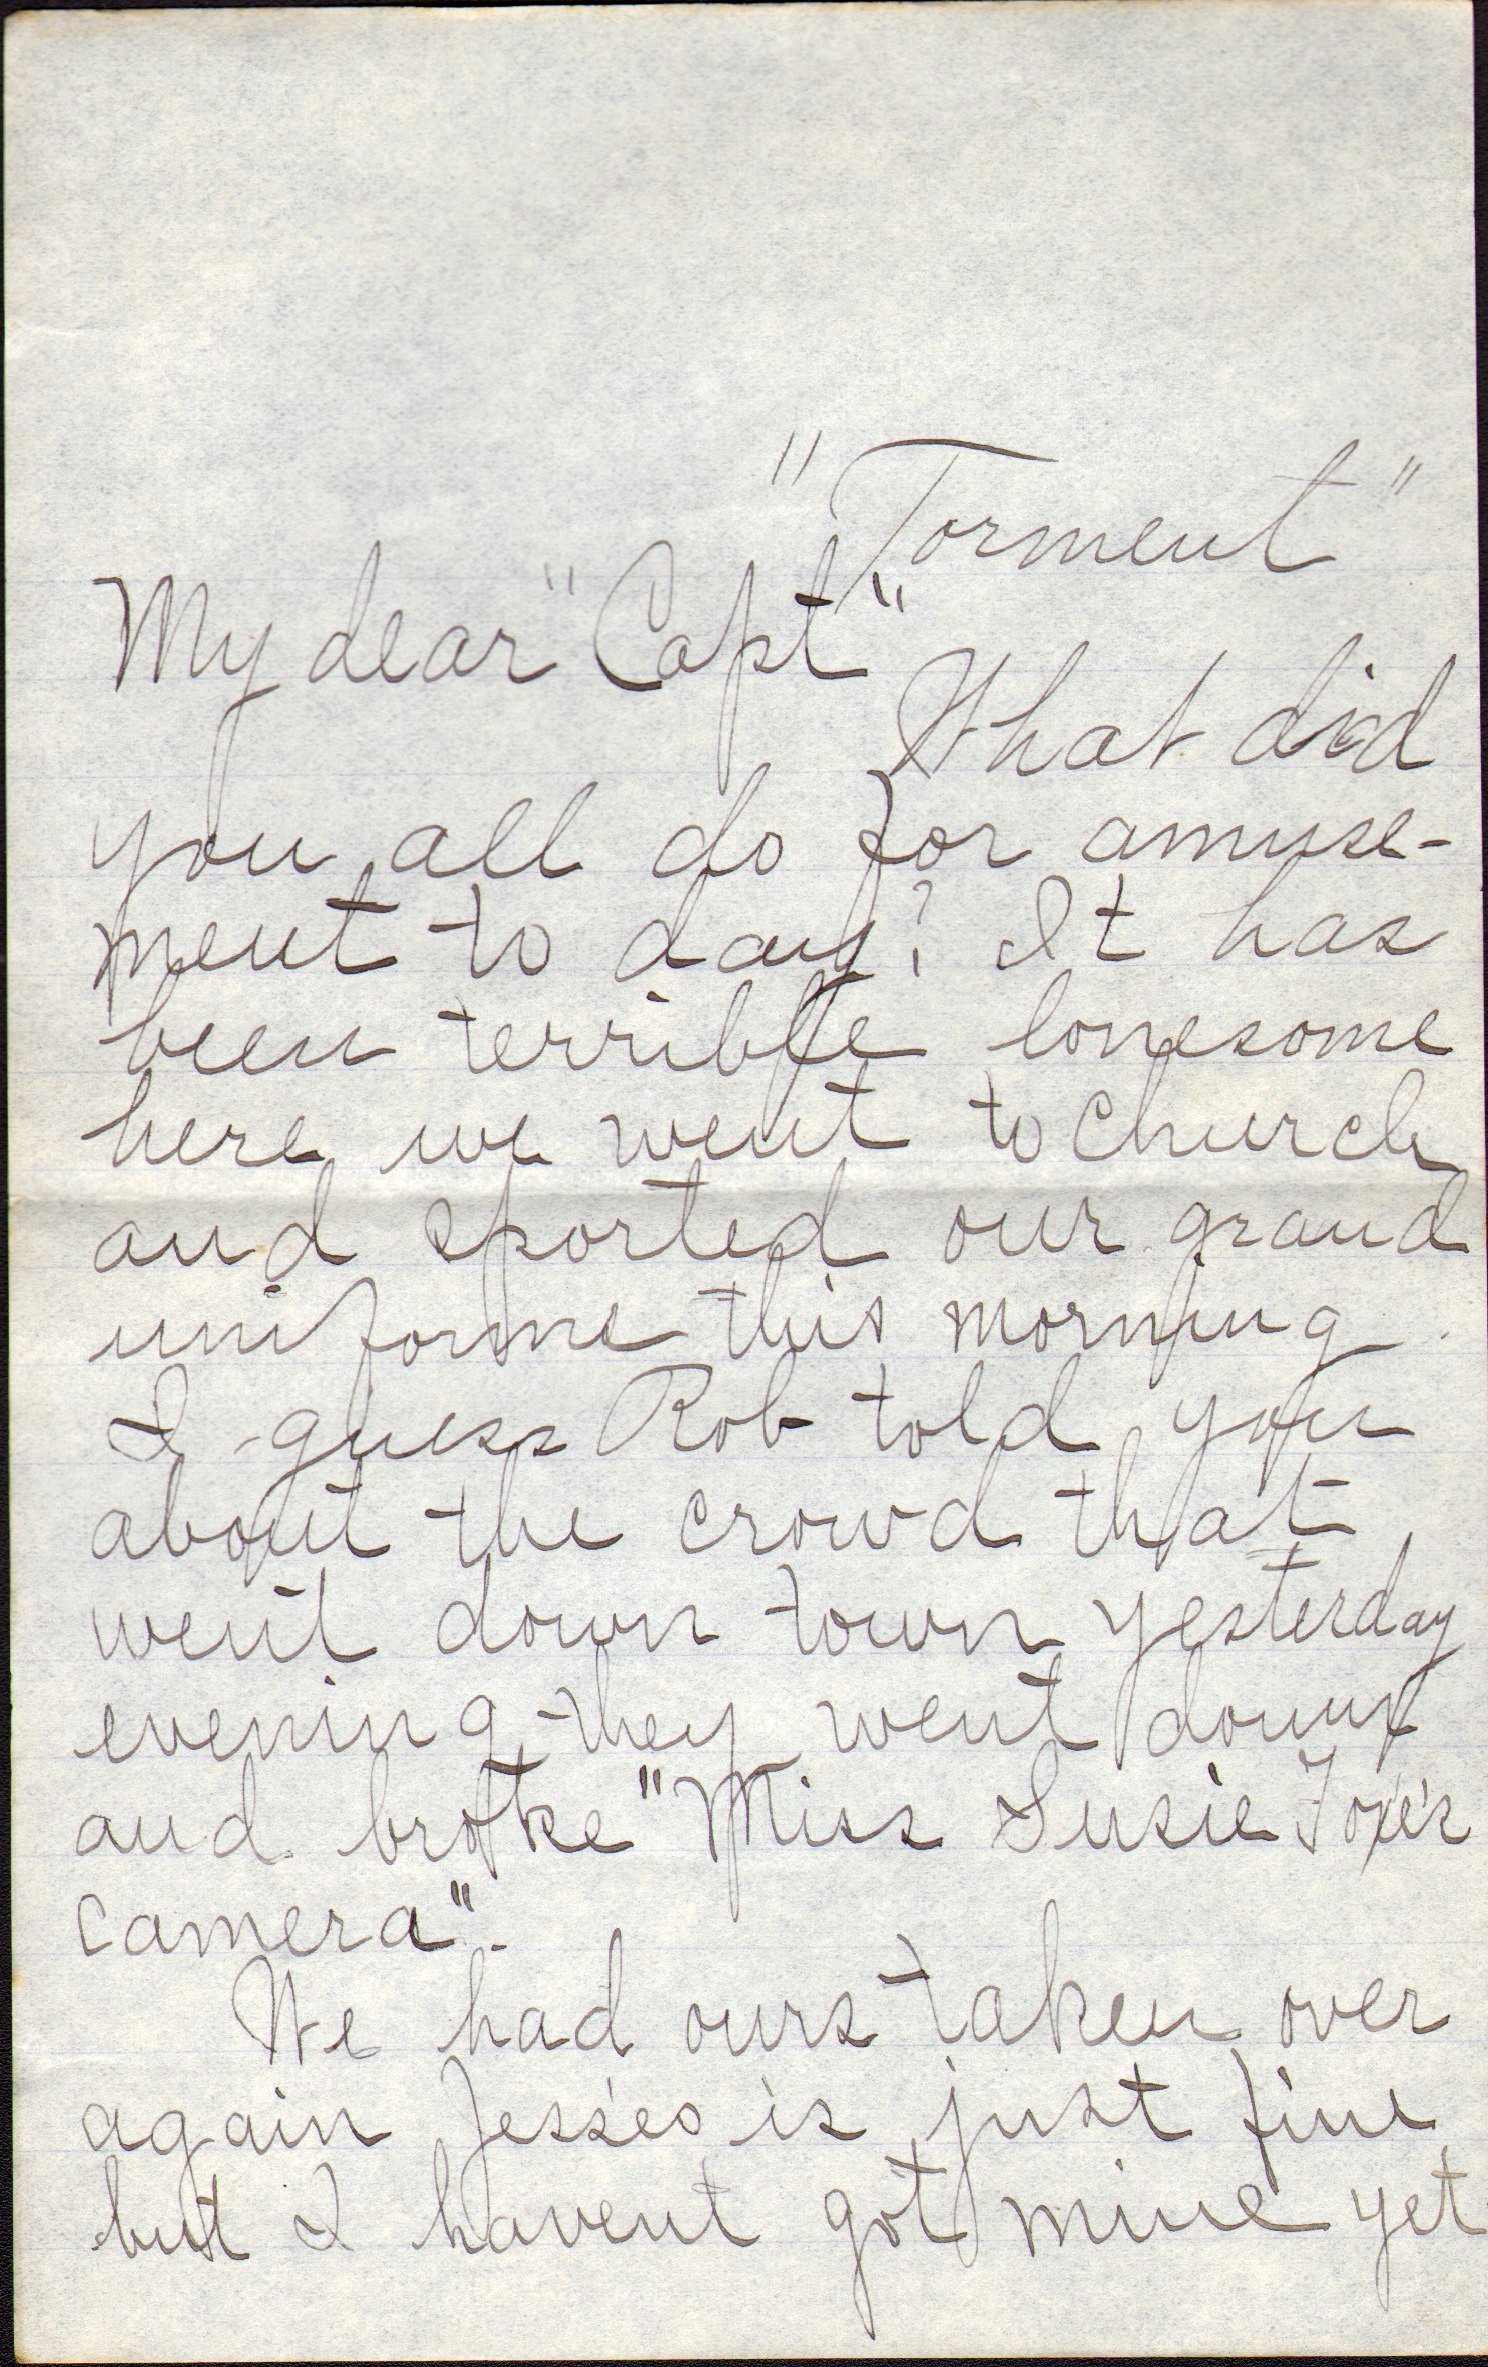 "Torment"
My dear "Capt"
What did
you all do for amuse-
ment to day? It has
been terrible lonesome
here we went to church
and sported our grand
uniforms this morning.
I guess Rob told you
about the crowd that
went down town yesterday
evening they went down
and broke "Miss Susie Foxe's
camera".
We had ours taken over
again Jessies is just fine
but I havent got mine yet